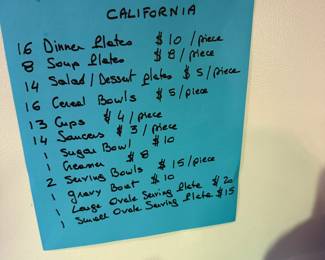 CALIFORNIA
16 Dinner Plates $ 10 / piece
8 Soup Plates $ 8 / piece
14 Salad / Dessert plates $ 5 / piece
16 Cereal Bowls $ 5 / piece
13 Cups $ 4 / piece
14 Saucers $ 3 / piece
1 Sugar Bowl $ 10
1 Creamer $ 8
2 Serving Bowls $ 15 / piece
1 gravy Boat $ 10
1 Large Ovale Serving Plate $ 20
1 Small Ovale Serving Plate $ 15